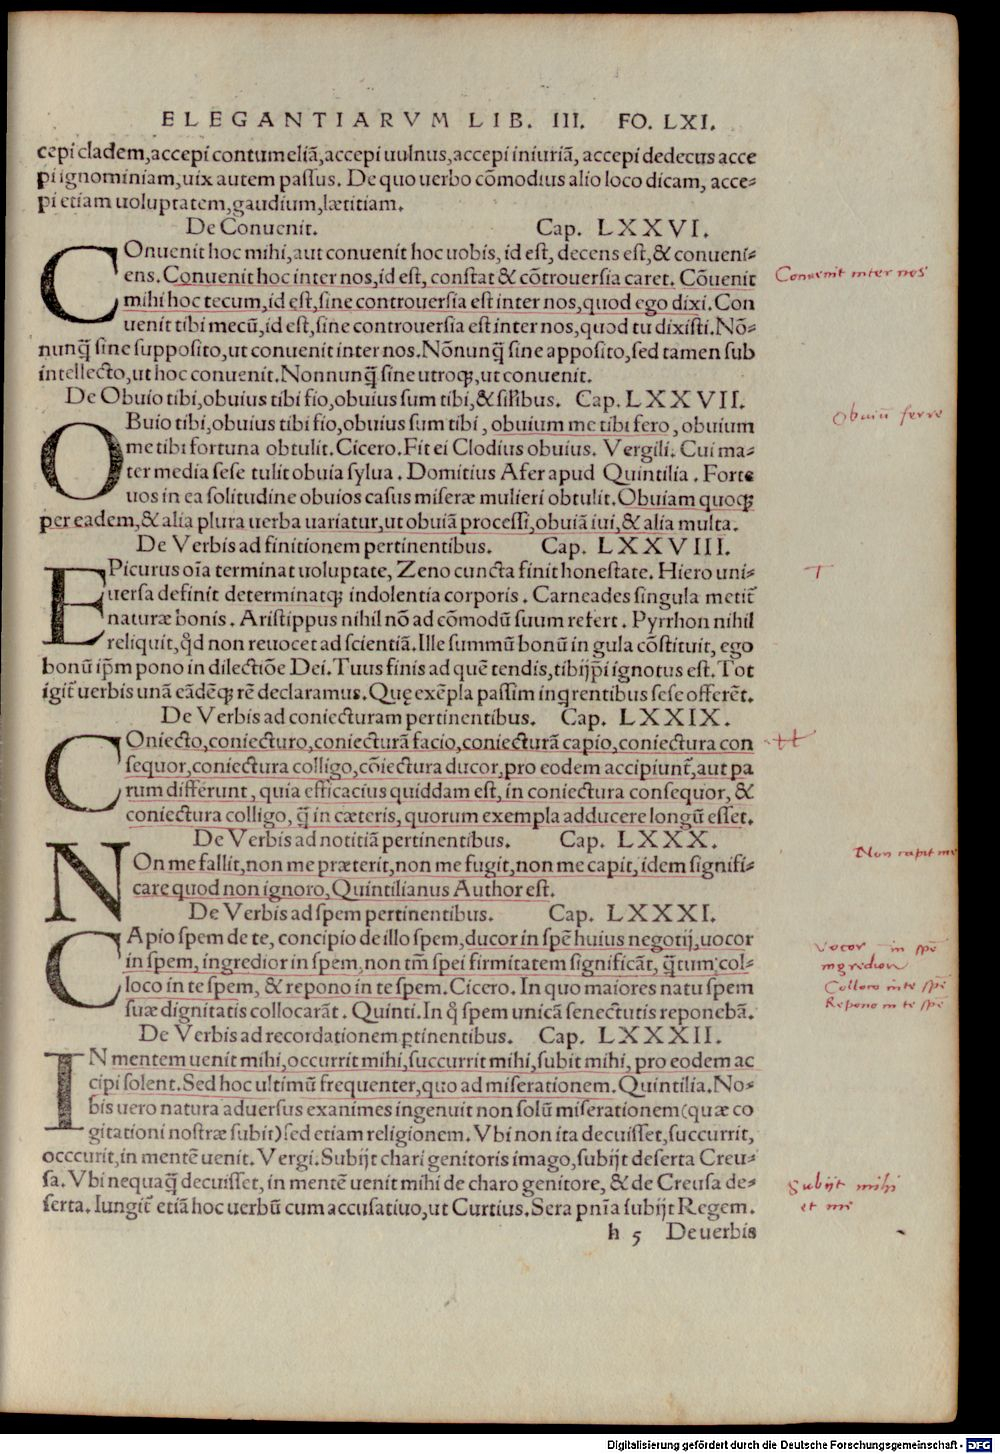 ELEGANTIARVM LIB. III. FO. LXI.
cepi cladem,accepi contumeliã,accepi uulnus,accepi iniuriã, accepi dedecus acce
pi ignominiam,uix autem passus. De quo uerbo cõmodius alio loco dicam, acce-
pi etiam uoluptatem,gaudium,lætitiam.
De Conuenit. Cap. LXXVI.
COnuenit hoc mihi,aut conuenit hoc uobis, id est, decens est,& conueni-
ens.Conuenit hoc inter nos,id est, constat & cõtrouersia caret. Cõuenit
mihi hoc tecum,id est,sine controuersia est inter nos,quod ego dixi.Con
uenit tibi mecũ,id est,sine controuersia est inter nos,quod tu dixisti.Nõ-
nunq̃ sine supposito,ut conuenit inter nos.Nõnunq̃ sine apposito,sed tamen sub
intellecto,ut hoc conuenit.Nonnunq̃ sine utroqꝫ,ut conuenit.
De Obuio tibi,obuius tibi fio,obuius sum tibi,& siĩlibus. Cap.LXXVII.
OBuio tibi,obuius tibi fio,obuius sum tibi, obuium me tibi fero, obuium
me tibi fortuna obtulit.Cicero.Fit ei Clodius obuius. Vergili. Cui ma-
ter media sese tulit obuia sylua. Domitius Afer apud Quintilia. Forte
uos in ea solitudine obuios casus miseræ mulieri obtulit.Obuiam quoqꝫ
per eadem,& alia plura uerba uariatur,ut obuiã processi,obuiã iui,& alia multa.
De Verbis ad finitionem pertinentibus. Cap. LXXVIII.
EPicurus oĩa terminat uoluptate, Zeno cuncta finit honestate. Hiero uni-
uersa definit determinatqꝫ indolentia corporis. Carneades singula metit̃
naturæ bonis. Aristippus nihil nõ ad cõmodũ suum refert. Pyrrhon nihil
reliquit,qd̃ non reuocet ad scientiã.Ille summũ bonũ in gula cõstituit, ego
bonũ ip̃m pono in dilectiõe Dei.Tuus finis ad quẽ tendis,tibijp̃i ignotus est. Tot
igit̃ uerbis unã eãdẽqꝫ rẽ declaramus.Quę exẽpla passim inqrentibus sese offerẽt.
De Verbis ad coniecturam pertinentibus. Cap. LXXIX.
COniecto,coniecturo,coniecturã facio,coniecturã capio,coniectura con
sequor,coniectura colligo,cõiectura ducor,pro eodem accipiunt̃,aut pa
rum differunt, quia efficacius quiddam est, in coniectura consequor, &
coniectura colligo, q̃ in cæteris, quorum exempla adducere longũ esset.
De Verbis ad notitiã pertinentibus. Cap. LXXX.
NOn me fallit,non me præterit,non me fugit,non me capit,idem signifi-
care quod non ignoro,Quintilianus Author est.
De Verbis ad spem pertinentibus. Cap. LXXXI.
CApio spem de te, concipio de illo spem,ducor in spẽ huius negotij,uocor
in spem, ingredior in spem,non tm̃ spei firmitatem significãt, q̃tum:col-
loco in te spem, & repono in te spem.Cicero. In quo maiores natu spem
suæ dignitatis collocarãt. Quinti.In q̃ spem unicã senectutis reponebã.
De Verbis ad recordationem ꝑtinentibus. Cap. LXXXII.
IN mentem uenit mihi,occurrit mihi,succurrit mihi,subit mihi, pro eodem ac
cipi solent.Sed hoc ultimũ frequenter,quo ad miserationem.Quintilia.No-
bis uero natura aduersus exanimes ingenuit non solũ miserationem(quæ co
gitationi nostræ subit)sed etiam religionem. Vbi non ita decuisset,succurrit,
occcurit,in mentẽ uenit. Vergi.Subijt chari genitoris imago,subijt deserta Creu-
sa.Vbi nequaq̃ decuisset, in mentẽ uenit mihi de charo genitore, & de Creusa de-
serta.Iungit̃ etiã hoc uerbũ cum accusatiuo,ut Curtius.Sera pn̄ia subijt Regem.
h 5 De uerbis
Conuenit inter nos
Obuiũ ferre
T
Non capit me
Vocor in spẽ
ingredior
Colloco in te spẽ
Repono in te spẽ
Subijt mihi
et me
Digitalisierung gefördert durch die Deutsche Forschungsgemeinschaft - DFG